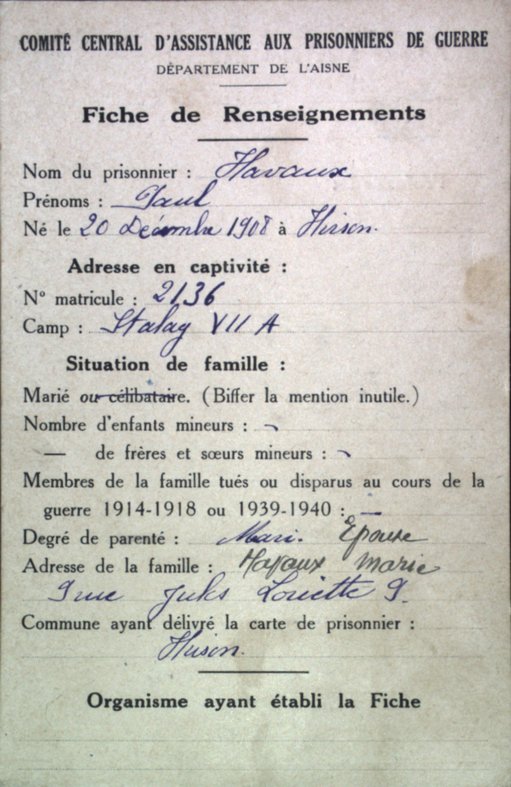 COMITÉ CENTRAL D'ASSISTANCE AUX PRISONNIERS DE GUERRE
DÉPARTEMENT DE L'AISNE
Fiche de Renseignements
Nom du prisonnier : Havaux
Prénoms : Paul
Né le 20 Décembre 1908 à Hirson.
Adresse en captivité :
N° matricule : 2136
Camp : Stalag VII A
Situation de famille :
Marié ou célibataire. (Biffer la mention inutile.)
Nombre d'enfants mineurs :
— de frères et sœurs mineurs :
Membres de la famille tués ou disparus au cours de la
guerre 1914-1918 ou 1939-1940 : —
Degré de parenté : Mari. Épouse
Adresse de la famille : Havaux Marie
9 rue Jules 9.
Commune ayant délivré la carte de prisonnier :
Hirson.
Organisme ayant établi la Fiche